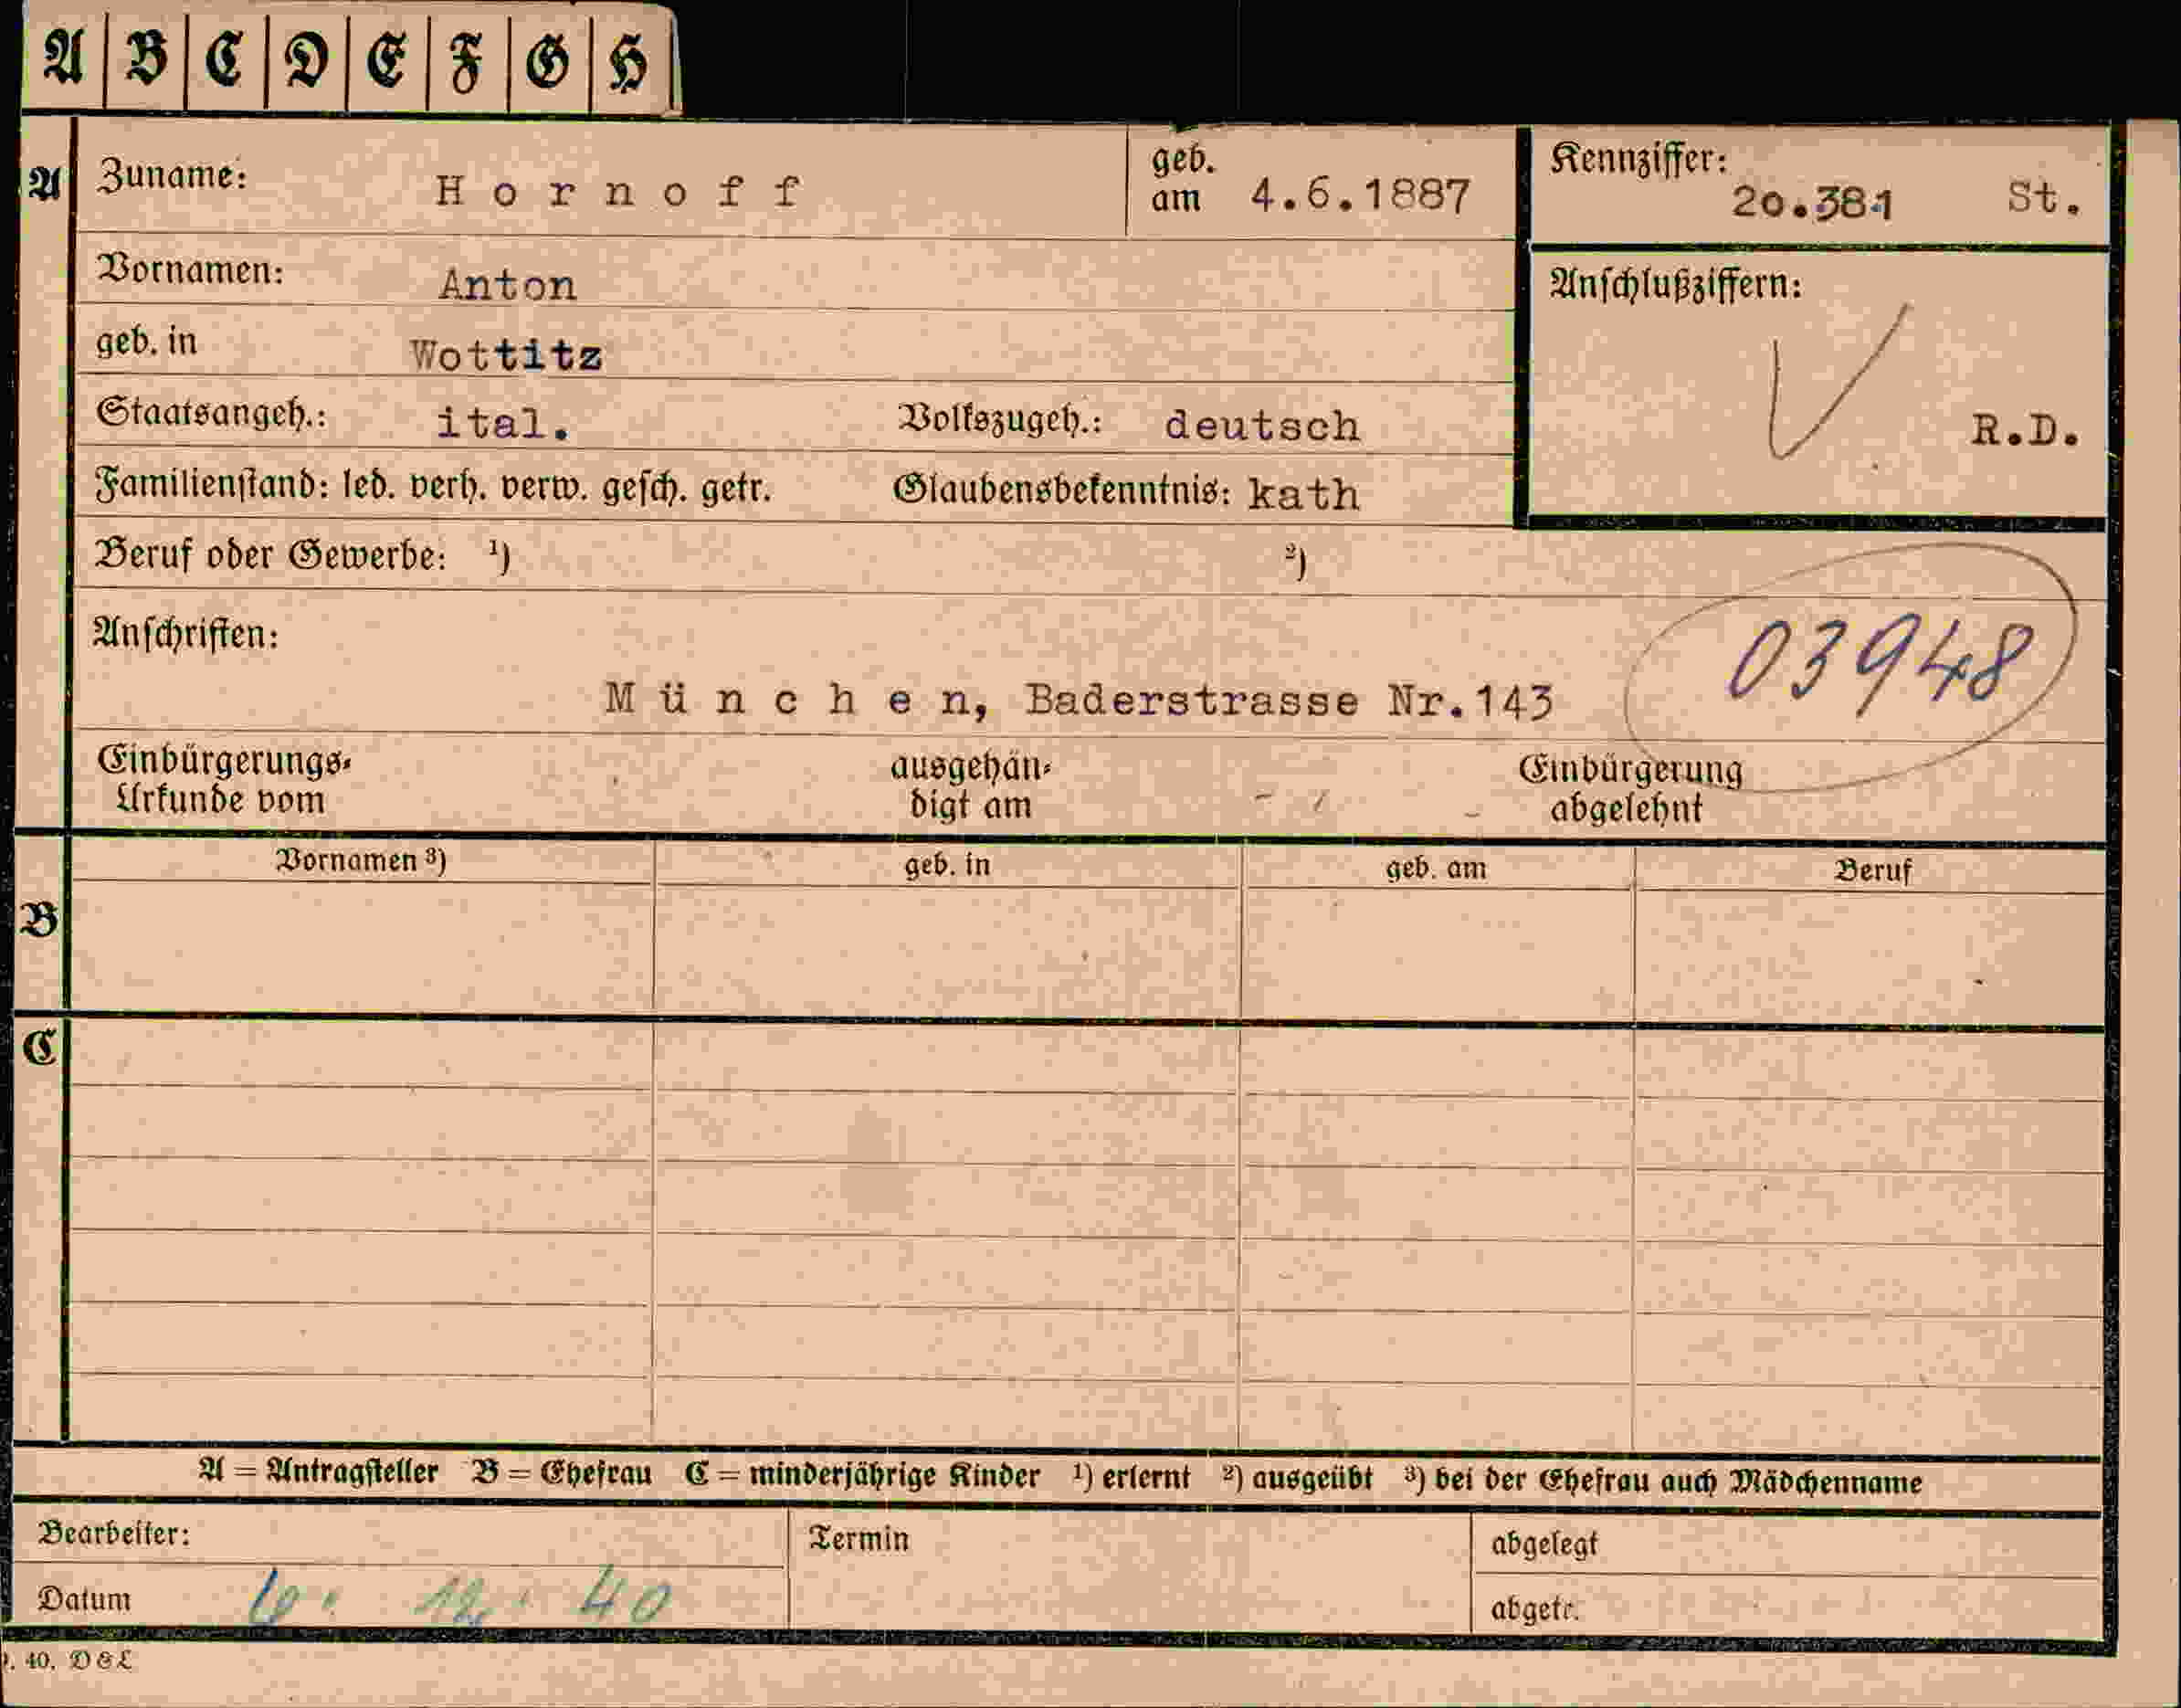 A B C D E F G H
A Zuname: Hornoff geb. am 4.6.1887 Kennziffer: 20.381 St.
Vornamen: Anton Anschlußziffern:
geb. in Wottitz
Staatsangeh.: ital. Volkszugeh.: deutsch R.D.
Familienstand: led. verh. verw. gesch. getr. Glaubensbekenntnis: kath
Beruf oder Gewerbe: ¹) ²)
Anschriften: 03948
München, Baderstrasse Nr.143
Einbürgerungs- ausgehän- Einbürgerung
Urkunde vom digt am abgelehnt
Vornamen ³) geb. in geb. am Beruf
B
C
A = Antragsteller B = Ehefrau C = minderjährige Kinder ¹) erlernt ²) ausgeübt ³) bei der Ehefrau auch Mädchenname
Bearbeiter: Termin abgelegt
Datum 6. 12. 40 abgetr.
40. D & L